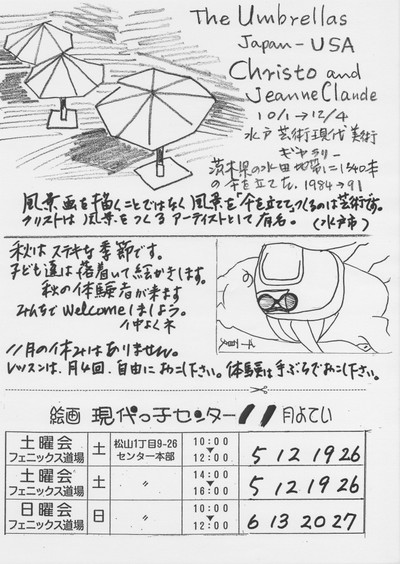 The Umbrellas
Japan - USA
Christo and
Jeanne Claude
10/1 → 12/4
水戸芸術現代美術
ギャラリー
茨木県の水田地帯に1340本
の傘を立てた、1984→91
風景画を描くことではなく風景を「傘を立て」つくるのは芸術です。
クリストは風景をつくるアーティストとして有名。(水戸市)
秋はステキな季節です。
子ども達は落着いて絵かきします。
秋の体験者が来ます
みんなでWelcomeしましょう。
仲よくネ
11月の休みはありません。
レッスンは、月4回、自由におこし下さい。体験は手ぶらでおこし下さい。
絵画 現代っ子センター 11月よてい
土曜会 フェニックス道場 土 松山1丁目9-26 センター本部 10:00 ▼ 12:00 5 12 19 26
土曜会 フェニックス道場 土 〃 14:00 ▼ 16:00 5 12 19 26
日曜会 フェニックス道場 日 〃 10:00 ▼ 12:00 6 13 20 27